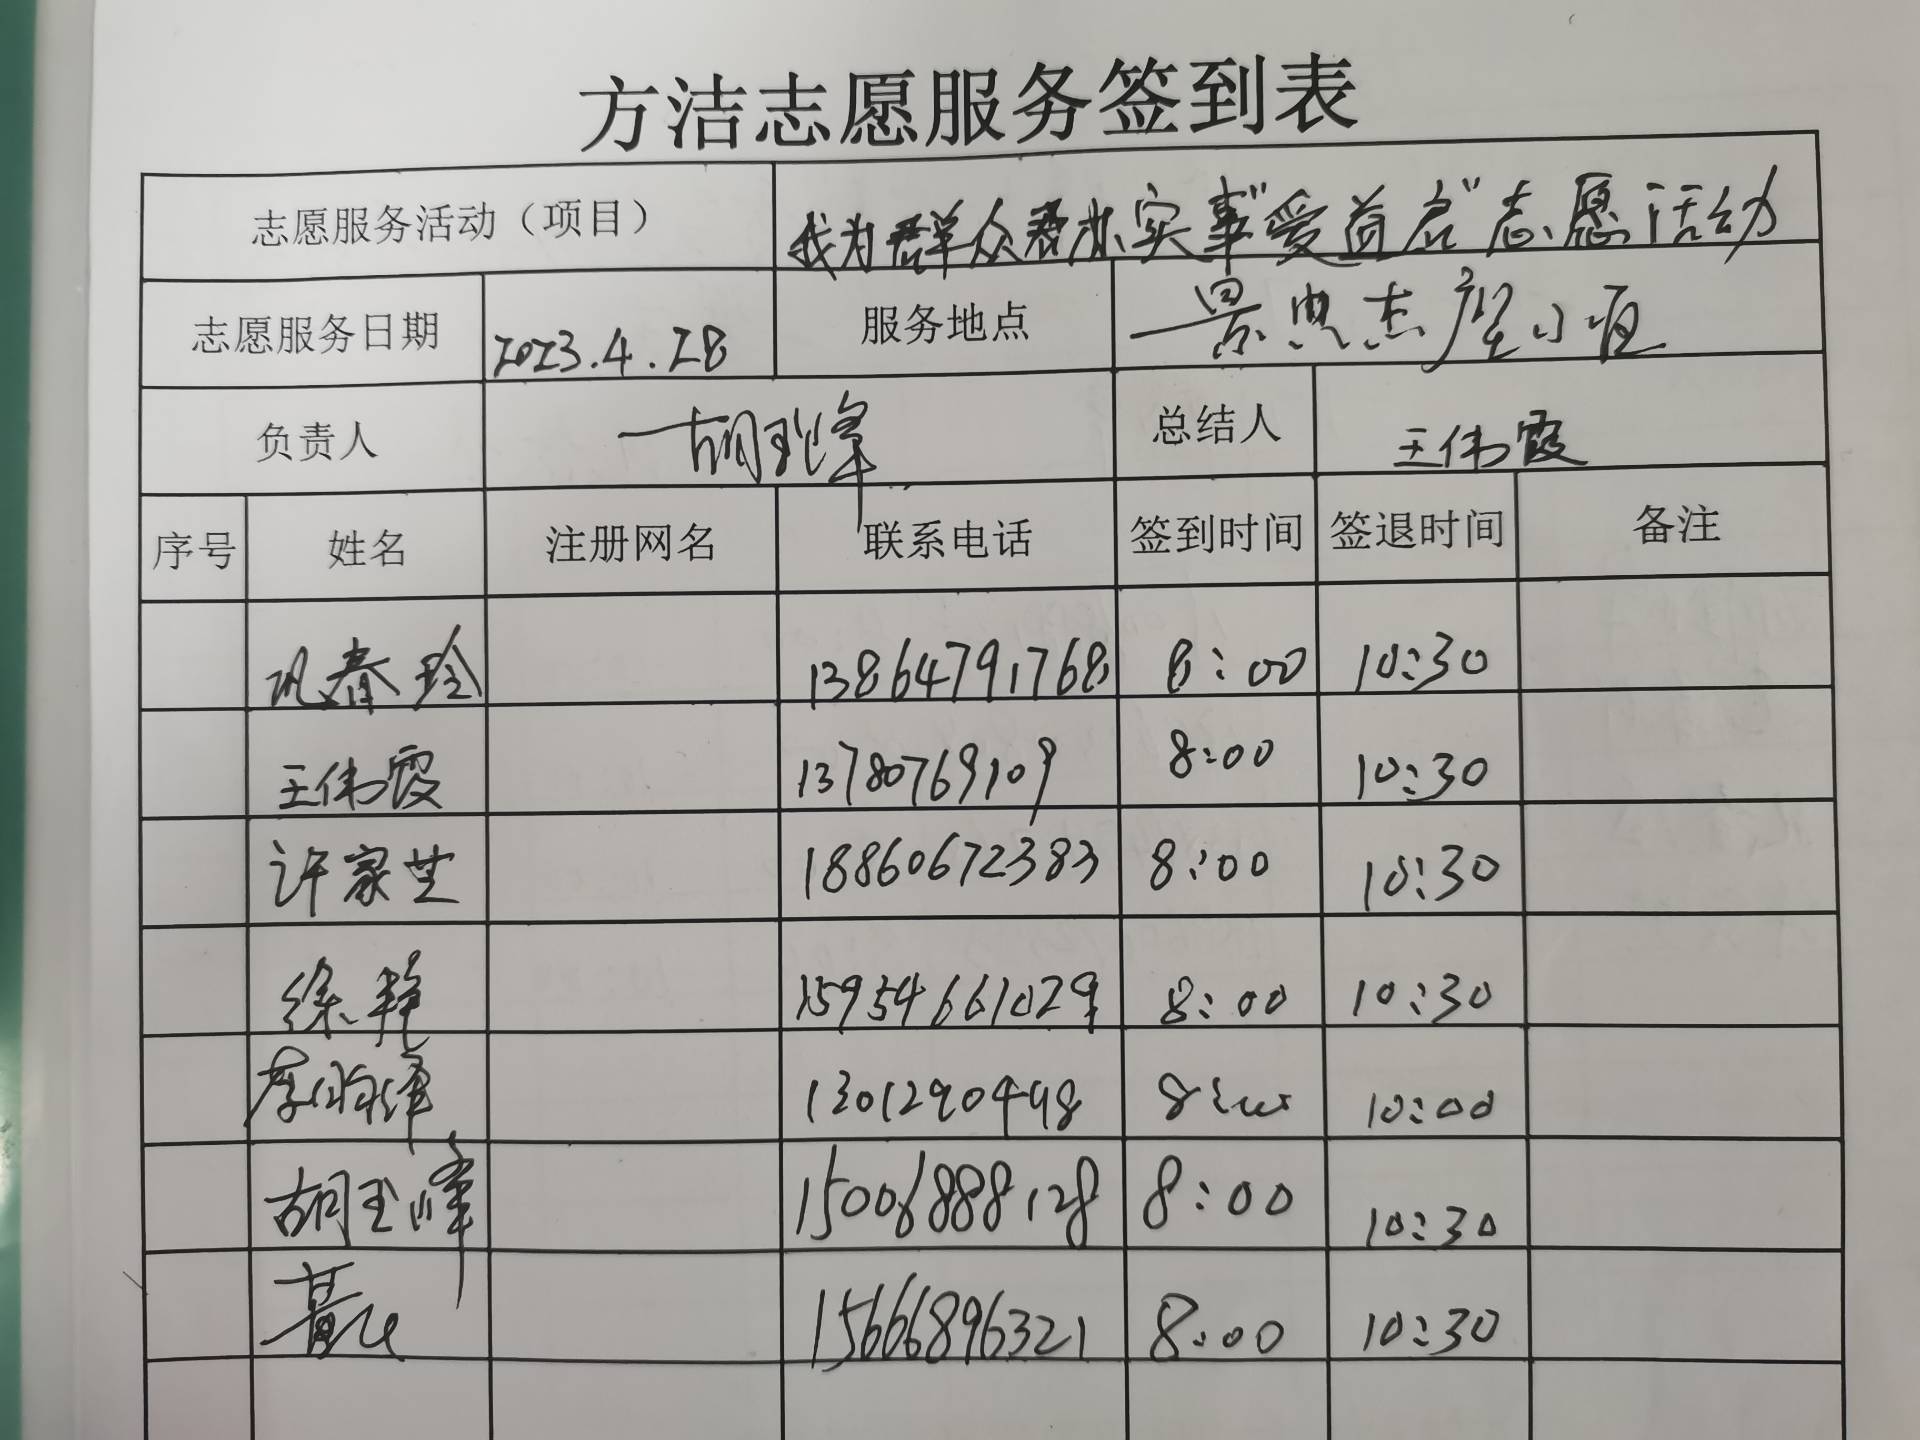 方洁志愿服务签到表
志愿服务活动（项目） 我为群众办实事"爱益启"志愿活动
志愿服务日期 2023.4.28 服务地点 景典 小区
负责人 胡玉峰 总结人 王伟霞
序号 姓名 注册网名 联系电话 签到时间 签退时间 备注
巩春玲 13864791768 8:00 10:30
王伟霞 13780769109 8:00 10:30
许家芝 18860672383 8:00 10:30
徐艳 15954661029 8:00 10:30
13012904498 8:00 10:00
胡玉峰 15006888128 8:00 10:30
15666896321 8:00 10:30